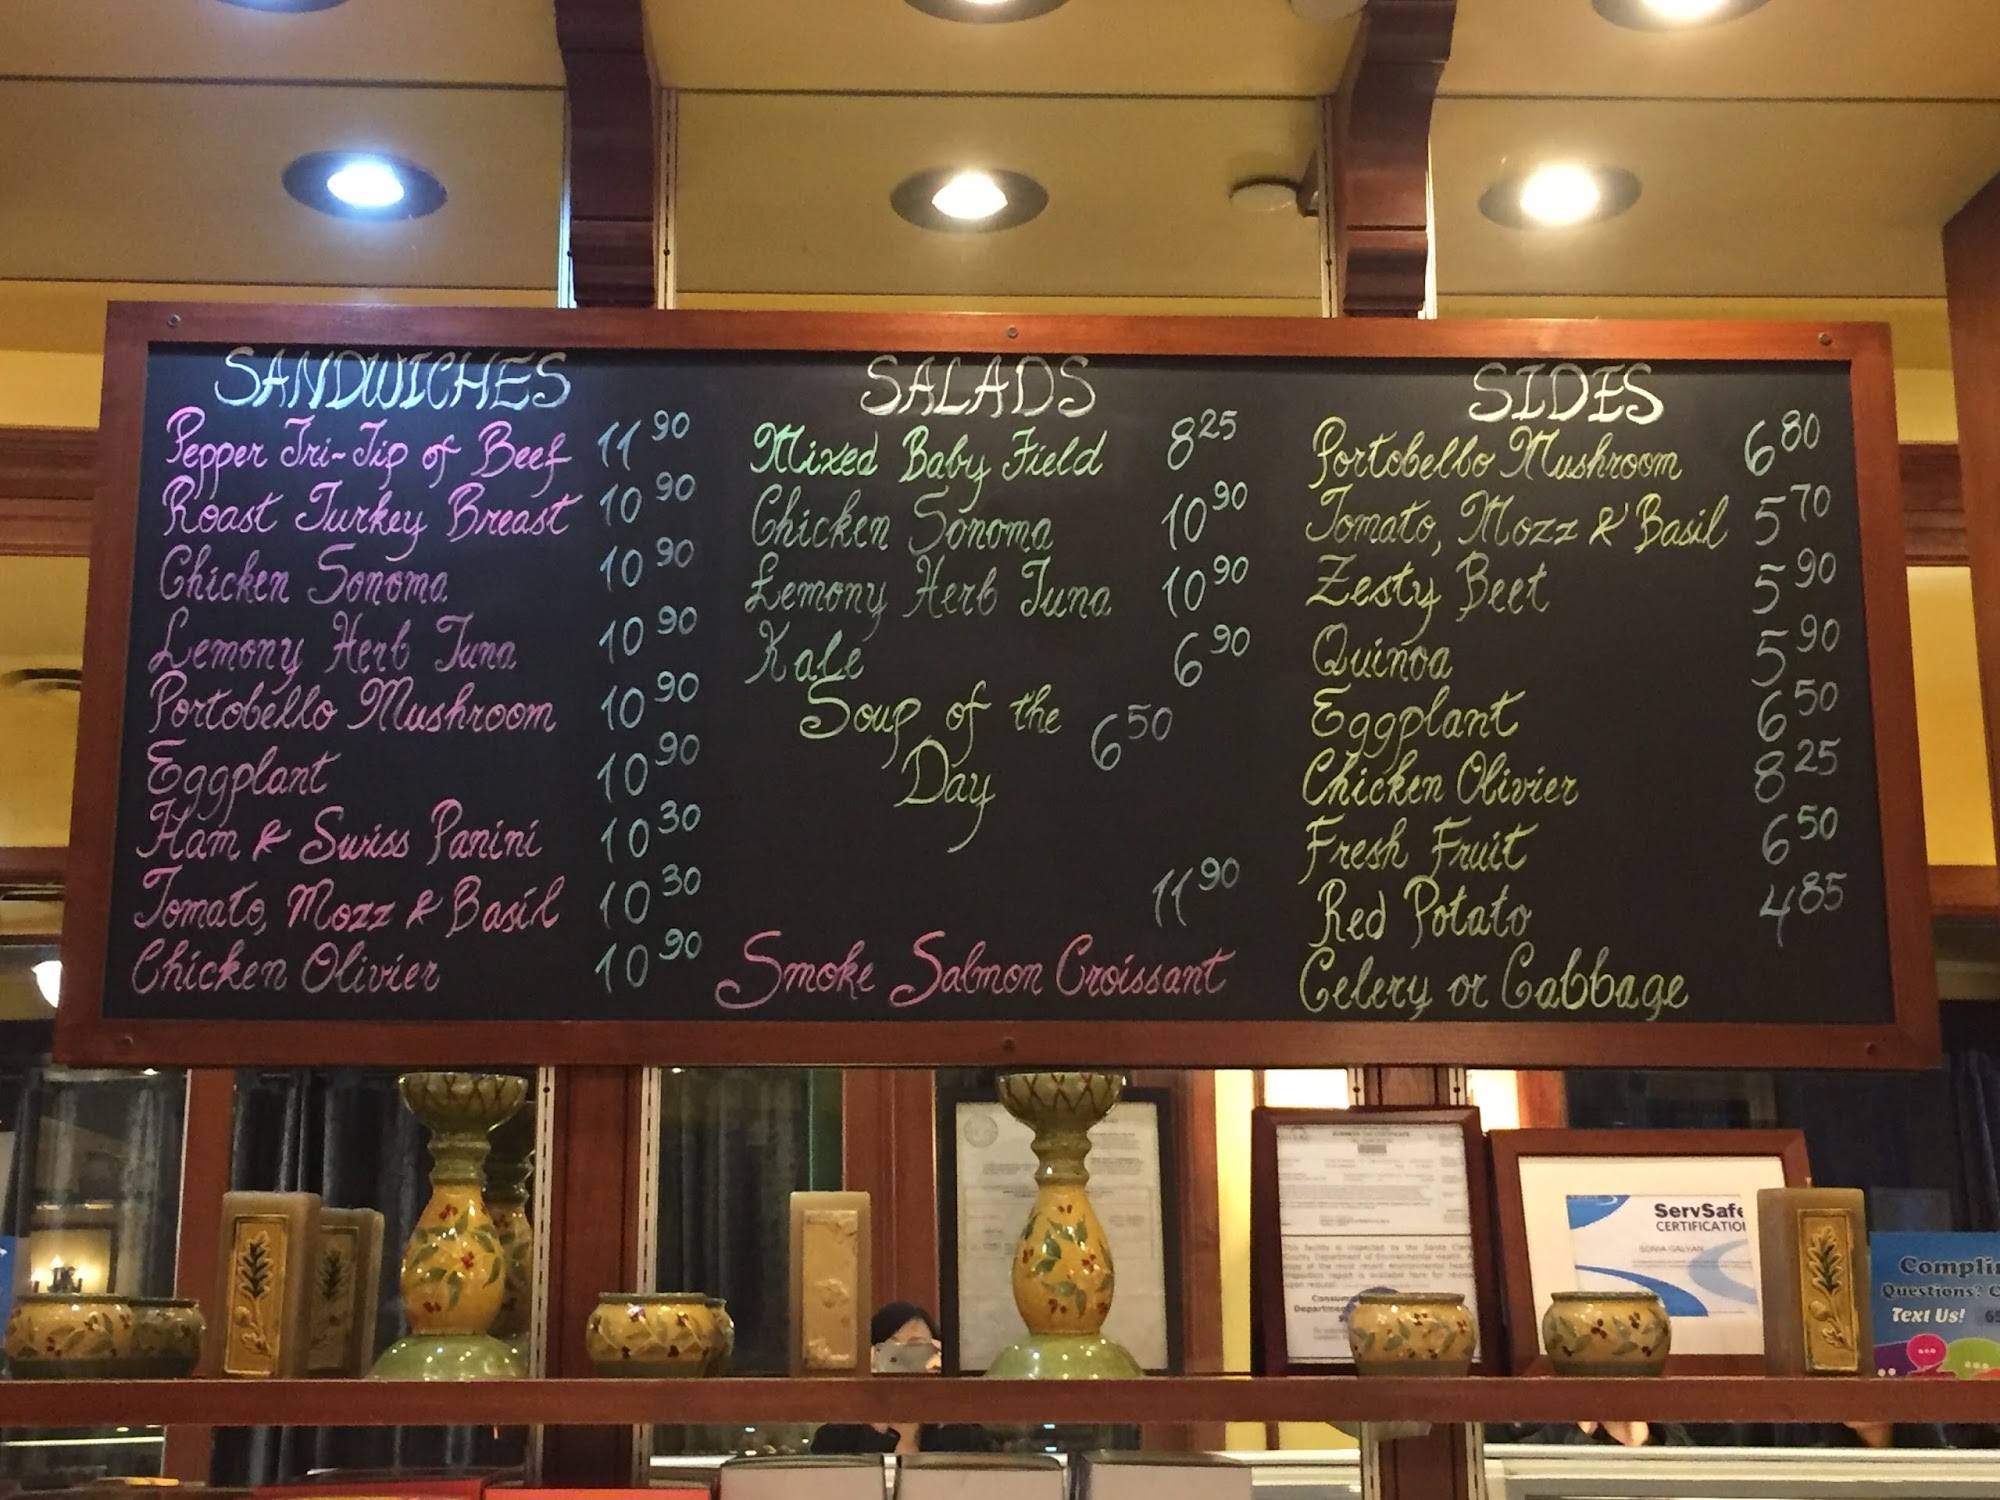 SANDWICHES
Pepper Tri-Tip of Beef 11 90
Roast Turkey Breast 10 90
Chicken Sonoma 10 90
Lemony Herb Tuna 10 90
Portobello Mushroom 10 90
Eggplant 10 90
Ham & Swiss Panini 10 30
Tomato, Mozz & Basil 10 30
Chicken Olivier 10 90
SALADS
Mixed Baby Field 8 25
Chicken Sonoma 10 90
Lemony Herb Tuna 10 90
Kale 6 90
Soup of the 6 50
Day
11 90
Smoke Salmon Croissant
SIDES
Portobello Mushroom 6 80
Tomato, Mozz & Basil 5 70
Zesty Beet 5 90
Quinoa 5 90
Eggplant 6 50
Chicken Olivier 8 25
Fresh Fruit 6 50
Red Potato 4 85
Celery or Cabbage
ServSafe
CERTIFICATIO
SONIA GALVAN
Compli
Questions? C
Text Us! 65